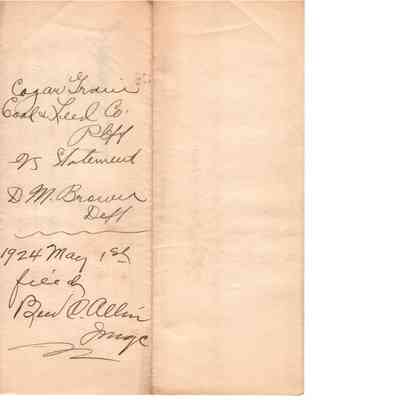 Cogar Grain
Coal & Feed Co.
Plff
vs Statement
D M. Brower
Deff
1924 May 1st
filed
Ben D. Allin